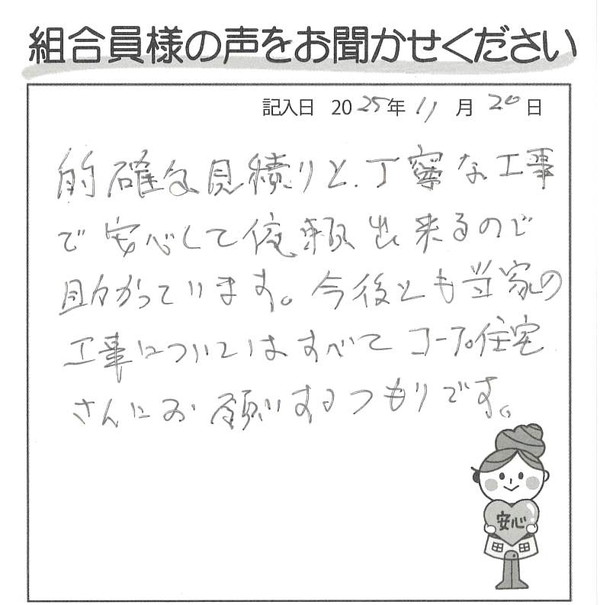 組合員様の声をお聞かせください
記入日 2025年11月20日
的確な見積りと、丁寧な工事
で安心して依頼出来るので
助かっています。今後とも当家の
工事についてはすべてコープ住宅
さんにお願いするつもりです。
安心